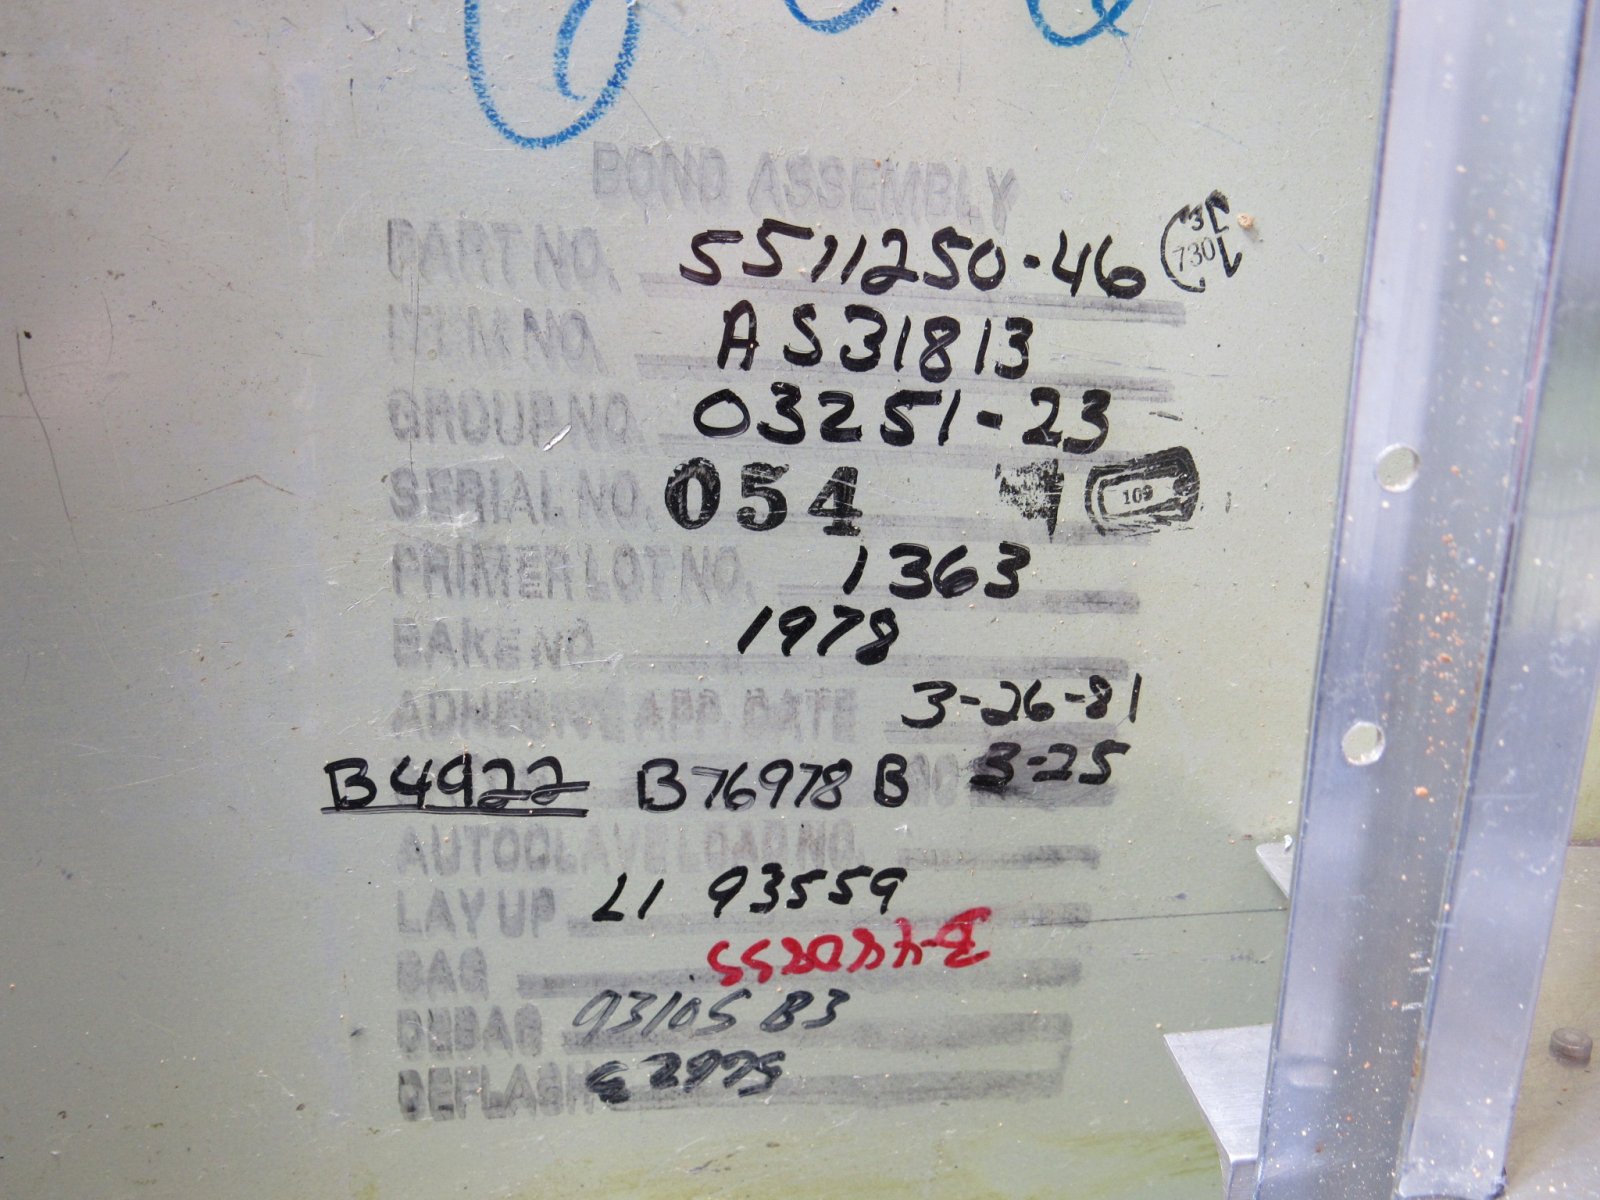 BOND ASSEMBLY
PART NO. 5511250-46 730
ITEM NO. AS31813
GROUP NO. 03251-23
SERIAL NO. 054 109
PRIMER LOT NO. 1363
BAKE NO. 1978
ADHESIVE APP. DATE 3-26-81
B4922 B76978 B 3-25
AUTOCLAVE LOAD NO.
LAY UP L1 93559
BAG
DEBAG 93105 B3
DEFLASH